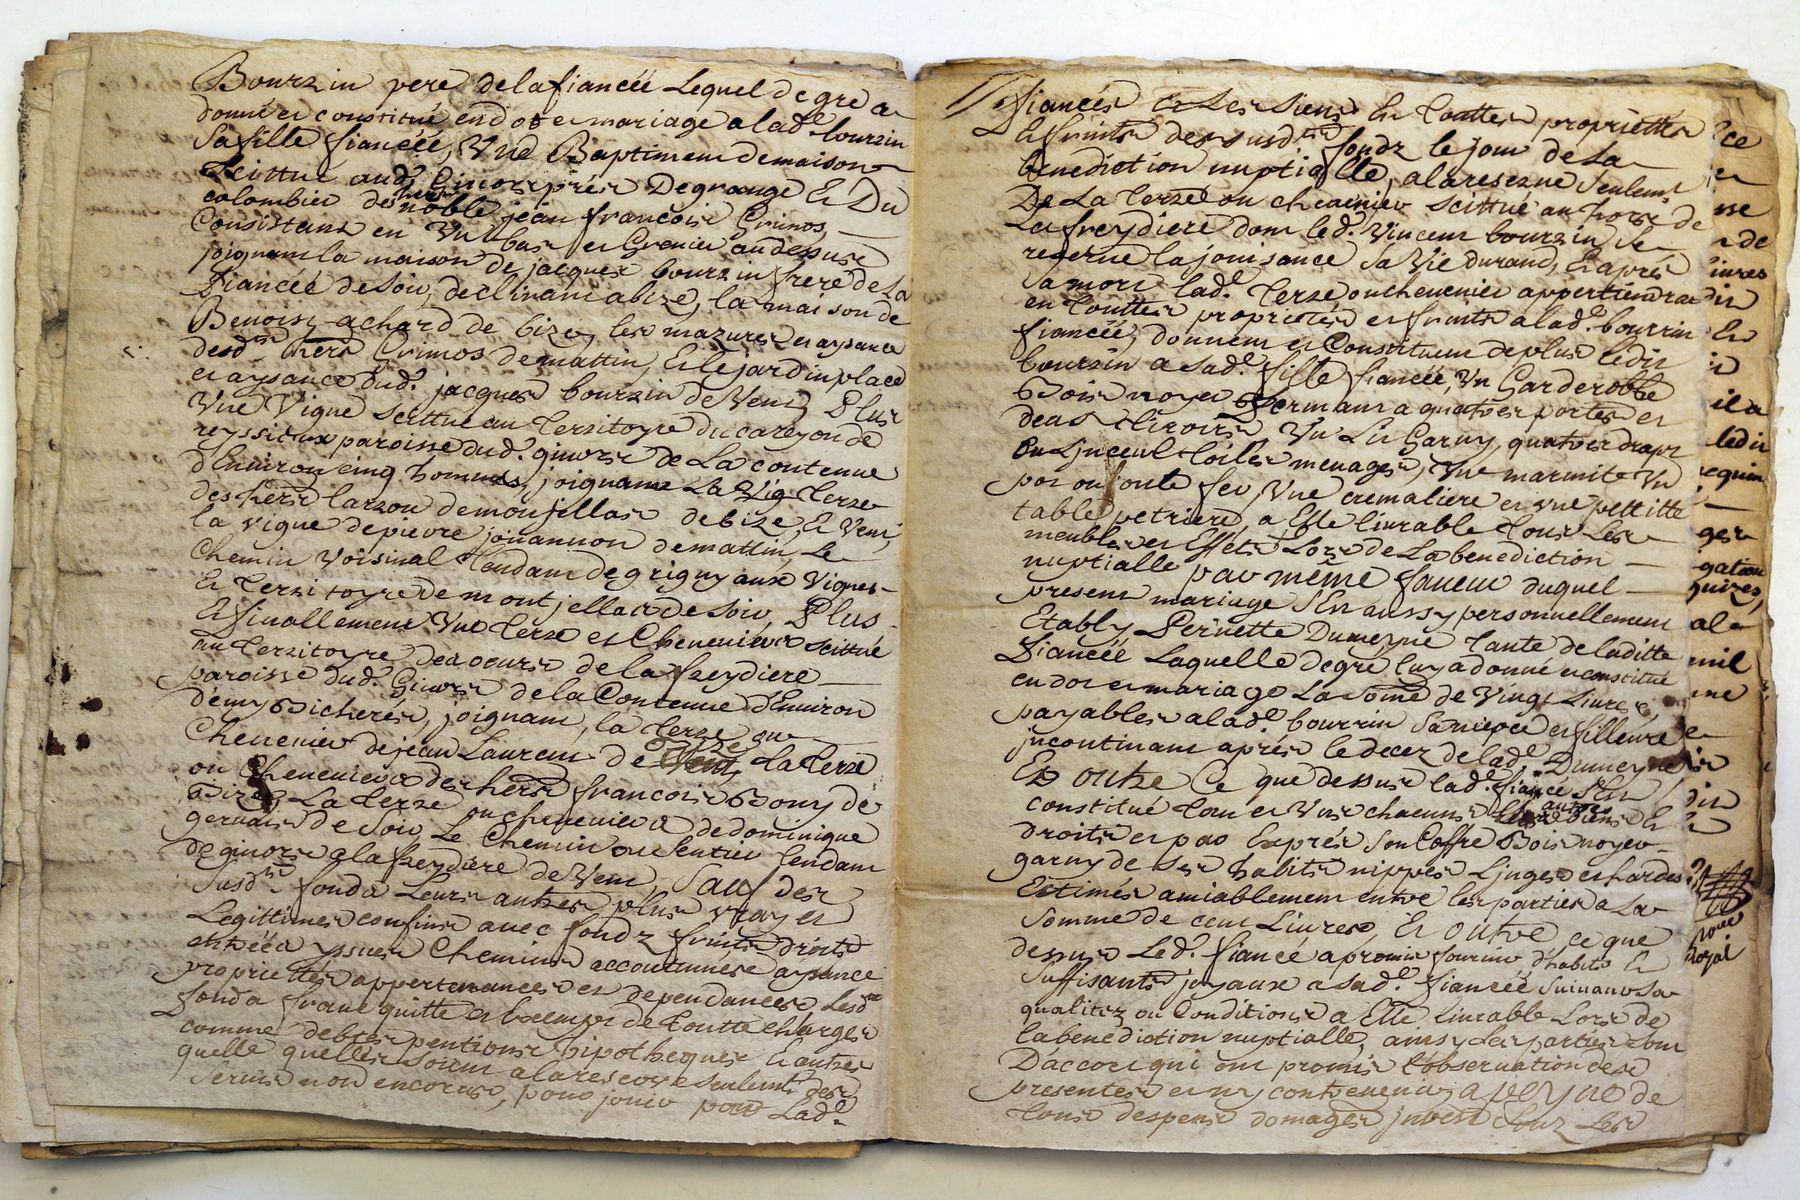 Bourzin pere de la fiancéé Lequel de gré a
donné et constitué en dot et mariage a lad.e bourzin
Sa fille fiancéé, Vne Baptiment de maison
Scittué aud.t Givors prés Degrange Et Du
colombier de noble jean francois Grimos,
Consistant en Vn bas et Grenier au dessus
joignant la maison de jacques bourzin frere de La
fiancéé de Soir, declinant a bize, la maison de
Benoist achard de bize, les mazures et aysance
desd.ts hers Grimos de mattin, Et le jardin place
et aysance dud.t jacques bourzin de Vent, Plus
Vne Vigne Scittué au Territoyre du careyon de
reyssieux paroisse dud.t givors de La contenue
d'Environ cinq hommes, joignant La Vig Terre
des hers larzon de monjellas de bize, Et Vent,
la vigne de pierre jouannon de mattin, Le
Chemin Voisinal Tendant de grigny aux Vignes
Et Territoyre de montjellas de Soir, Plus
Et finallement Vne Terre et Chenevier Scittué
au Territoyre de la freydiere
paroisse dud.t Givors de la Contenue d'Environ
demy Bicheréé, joignant, la Terre ou
Chenevier de jean Laurent de bize la Terre
ou Chenevier des hers francois Bony de
Bize, La Terre ou chenevier de dominique
gervais de Soir, Le Chemin ou Sentier Tendant
de givors a la freydiere de Vent, Sauf des
Susd.ts fonds Leurs autres plus vray et
Legittimes confins avec fondz fruits droits
entréés yssues Chemins accoutumés aysance
proprietés appertenances et dependances, Lesd.ts
fonds franc quitte et Exempt de Toutte charges
comme debtes pentions hipotheques Et autres
quelle quelles Soient a la reserve Seulem.t des
Servis non encorus, pour jouir pour Lad.e
fiancéé et Les Siens En Touttes proprietés
Et fruits des susd.ts fondz le jour de La
benediction nuptialle, a la reserve Seulem.t
De La Terre ou chenevier Scittué au Terre de
La freydiere dont led.t Vincent bourzin Se
reserve la jouisance Sa Vie durand, Et aprés
Sa mort lad.e Terre ou chenevier appertiendra
en Touttes proprietés et fruits a lad.e bourzin
fiancéé, donnent et Constituent de plus ledit
bourzin a Sad.e fille fiancéé, Vn Garderobbe
Bois noyer fermant a quatres portes et
deux tiroirs Vn Lit Garny, quatres draps
ou Linceul toiles menages, Vne marmite Vn
pot ou fonte fer, Vne cremaliere et vne pettitte
table petriere, a Elle livrable Tous Les
meubles et Effets Lors de La benediction
nuptialle par même faveur duquel
present mariage S'Est aussy personnellement
Etably Pernette Dumeyne Tante de laditte
fiancéé Laquelle de gré luy a donné et constitué
en dot et mariage La Somme de Vingt Livres,
payables a lad.e bourzin Sa niepce et filleure
jncontinant aprés le decez de lad.e Dumeyne
En outre Ce que dessus lad.e fiancé S'Est
constitué Tous et Vns chacuns Ses autres biens Et
droits et par Exprés Son Coffre Bois noyer
garny de Ses habits nippes Linges et hardes
Estimés amiablement entre les parties a La
Somme de cent Livres, Et outre ce que
dessus Led.t fiancé a promis fournir d'habits Et
Suffisants joyaux a Sad.e fiancéé Suivant Sa
qualitez ou Conditions a Elle livrable Lors de
la benediction nuptialle, ainsy Les parties Sont
D'accort qui ont promis l'observation des
presentes et n'y contrevenir a peyne de
Tous despens domages jnterest Sous Les